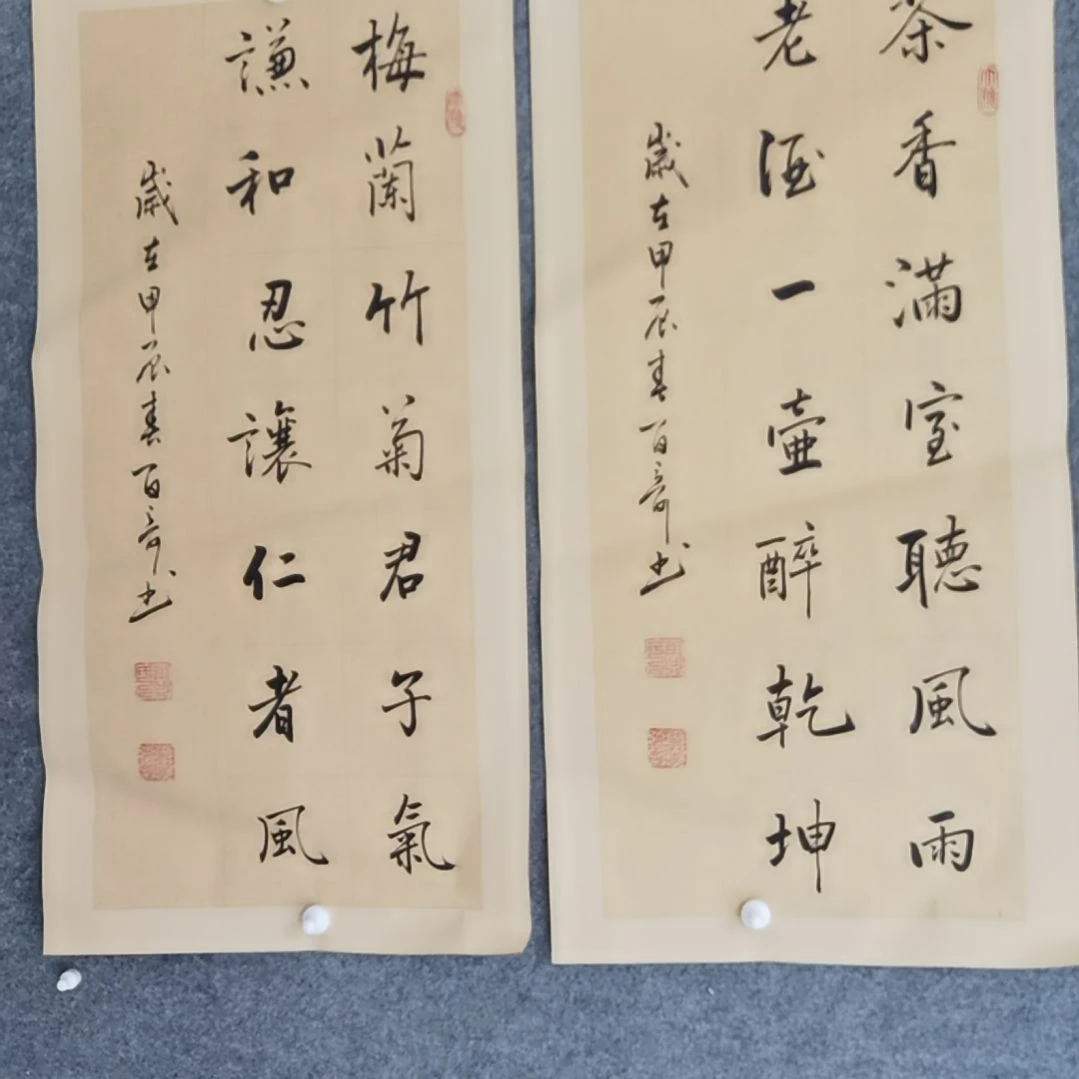 茶香滿室聽風雨
老酒一壺醉乾坤
歲在甲辰春百奇书
梅蘭竹菊君子氣
謙和忍讓仁者風
歲在甲辰春百奇书